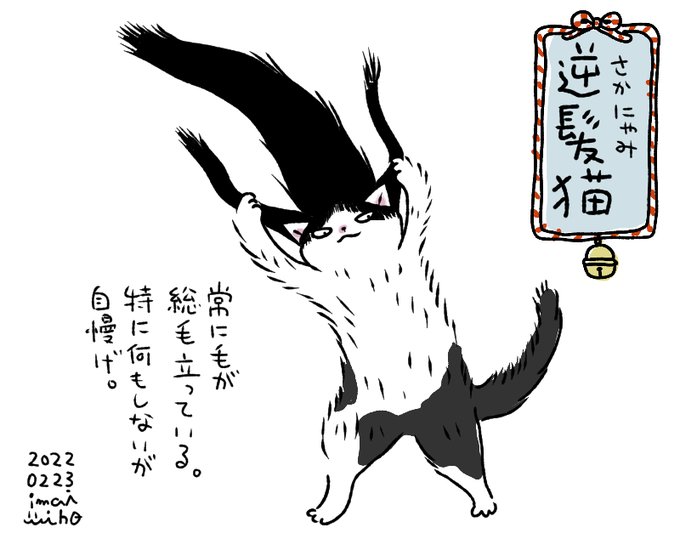 逆髪猫
さかにゃみ
常に毛が
総毛立っている。
特に何もしないが
自慢げ。
2022
0223
imai
miho